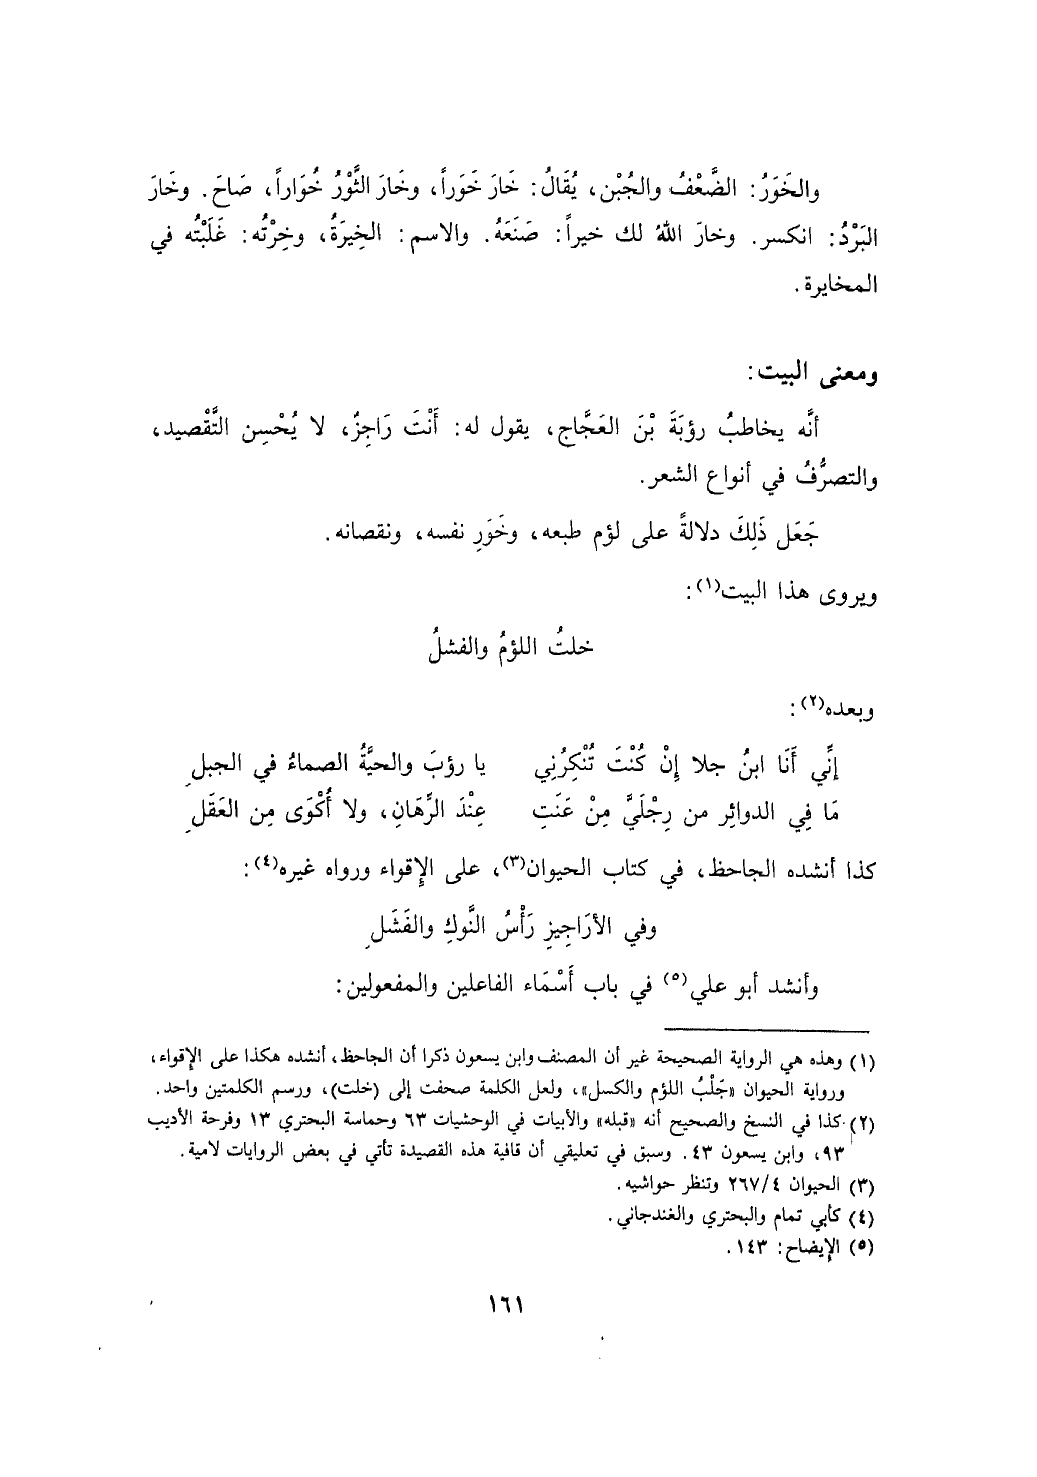 والخَوَرُ: الضَّعْفُ والجُبْن، يُقَالُ: خَارَ خَوَراً، وخَارَ الثَّوْرُ خُوَاراً، صَاحَ. وخَارَ
البَرْدُ: انكسر. وخارَ اللهُ لك خيراً: صَنَعَهُ. والاسم: الخِيرَةُ، وخِرْتُه: غَلَبْتُه في
المخايرة.
ومعنى البيت:
أنَّه يخاطبُ رؤبَةَ بْنَ العَجَّاج، يقول له: أَنْتَ رَاجِزٌ، لا يُحْسِن التَّقْصيد،
والتصرُّفُ في أنواع الشعر.
جَعَل ذَلِكَ دلالةً على لؤم طبعه، وخَوَرِ نفسه، ونقصانه.
ويروى هذا البيت(١):
خلتُ اللؤمُ والفشلُ
وبعده(٢):
إنِّي أَنَا ابنُ جلا إِنْ كُنْتَ تُنْكِرُنِي يا رؤبَ والحيَّةُ الصماءُ في الجبلِ
مَا فِي الدوائِر من رِجْلَيَّ مِنْ عَنَتِ عِنْدَ الرِّهَانِ، ولا أُكْوَى مِن العَقَلِ
كذا أنشده الجاحظ، في كتاب الحيوان(٣)، على الإقواء ورواه غيره(٤):
وفي الأرَاجِيزِ رَأْسُ النَّوكِ والفَشَلِ
وأنشد أبو علي(٥) في باب أَسْمَاء الفاعلين والمفعولين:
(١) وهذه هي الرواية الصحيحة غير أن المصنف وابن يسعون ذكرا أن الجاحظ، أنشده هكذا على الإقواء،
ورواية الحيوان «جَلْبُ اللؤم والكسل»، ولعل الكلمة صحفت إلى (خلت)، ورسم الكلمتين واحد.
(٢) كذا في النسخ والصحيح أنه «قبله» والأبيات في الوحشيات ٦٣ وحماسة البحتري ١٣ وفرحة الأديب
٩٣، وابن يسعون ٤٣. وسبق في تعليقي أن قافية هذه القصيدة تأتي في بعض الروايات لامية.
(٣) الحيوان ٢٦٧/٤ وتنظر حواشيه.
(٤) كأبي تمام والبحتري والغندجاني.
(٥) الإيضاح: ١٤٣.
١٦١